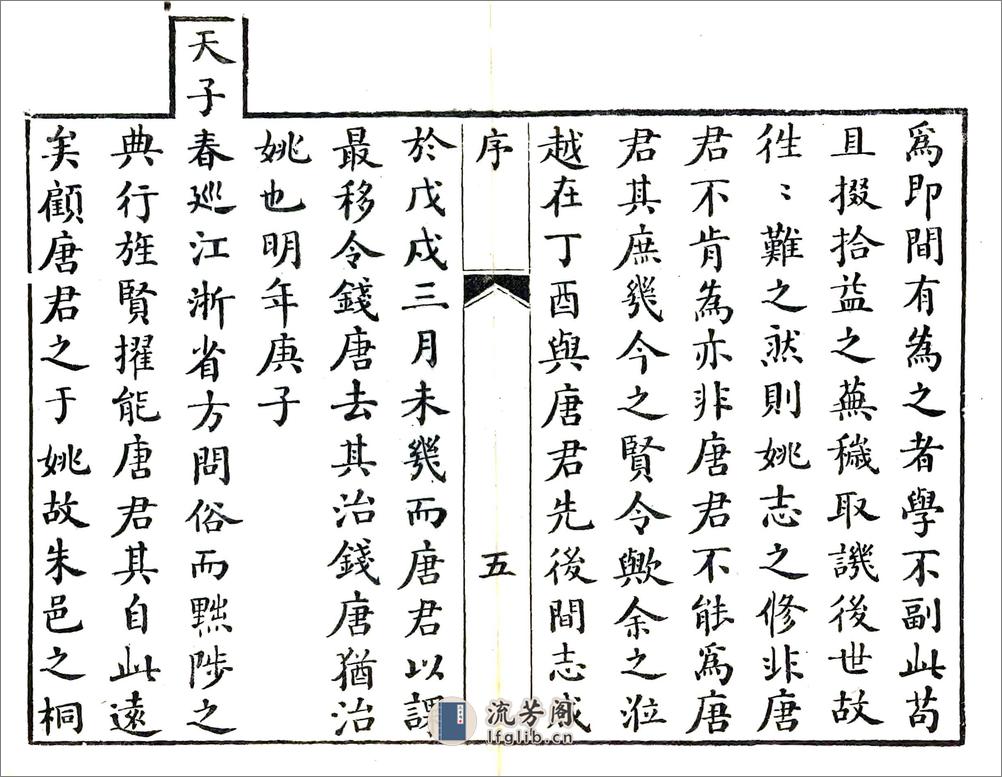 爲即間有爲之者學不副此苟
且掇拾益之蕪穢取譏後世故
徃〻難之然則姚志之修非唐
君不肯爲亦非唐君不能爲唐
君其庶幾今之賢令歟余之涖
越在丁酉與唐君先後間志成
序
五
於戊戌三月未幾而唐君以課
最移令錢唐去其治錢唐猶治
姚也明年庚子
天子
春廵江浙省方問俗而黜陟之
典行旌賢擢能唐君其自此遠
矣顧唐君之于姚故朱邑之桐
流芳阁
lfglib.cn